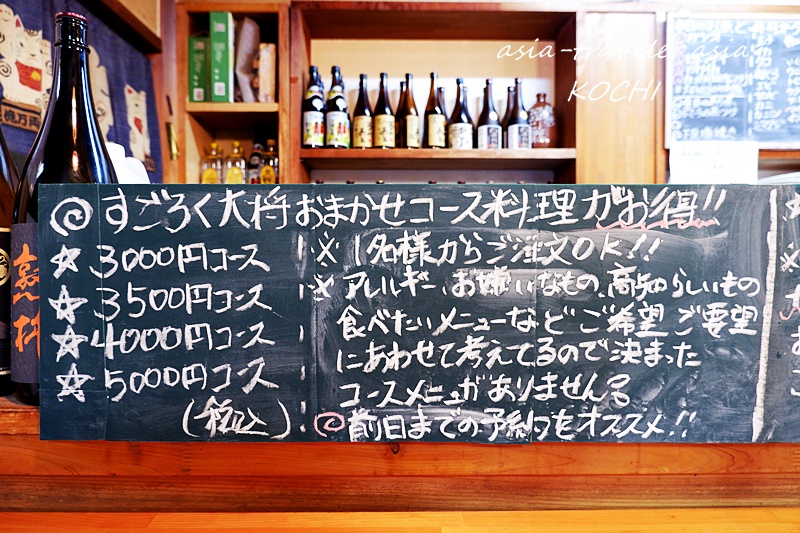 asia-traveler.asia
KOCHI
すごろく大将おまかせコース料理がお得!!
☆3000円コース
☆3500円コース
☆4000円コース
☆5000円コース
(税込)
※1名様からご注文OK!!
※アレルギー、お嫌いなもの、高知らしいもの
食べたいメニューなどご希望ご要望
にあわせて考えてるので決まった
コースメニューがありません。
前日までの予約をオススメ!!